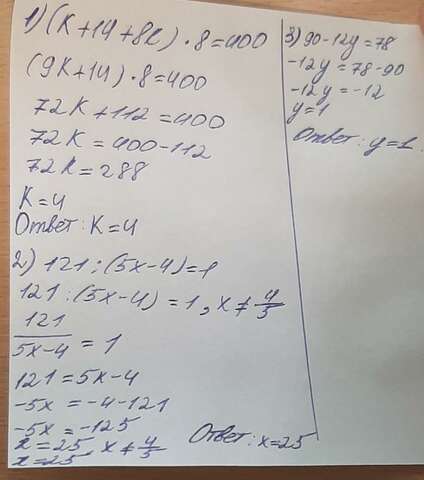 1) (K+14+8K) · 8=400
(9K+14) · 8=400
72K+112=400
72K=400-112
72K=288
K=4
Ответ: K=4
2) 121:(5x-4)=1
121:(5x-4)=1, x≠4/5
121/5x-4 = 1
121=5x-4
-5x = -4-121
-5x = -125
x=25, x≠4/5
x=25
Ответ: x=25
3) 90-12y=78
-12y=78-90
-12y=-12
y=1
Ответ: y=1.